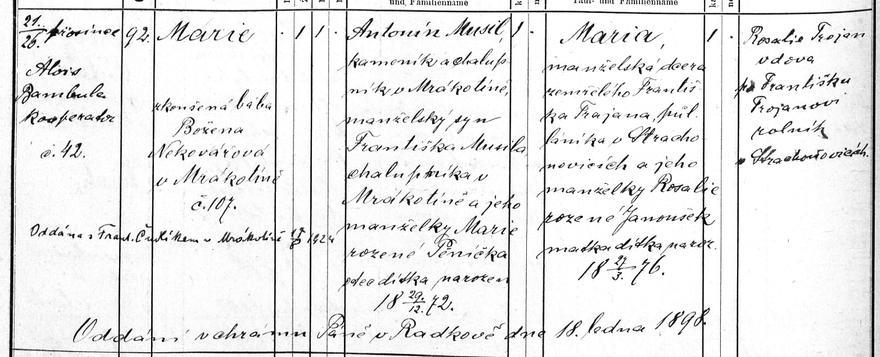 und Familienname
Tauf- und Familienname
21./26. prosince
Alois
Bambula
kooperator
č. 42.
92.
Marie
zkoušená bába
Božena
Nekovářová
v Mrákotíně
č. 107.
Oddána s Frant. Čudlíkem v Mrákotíně 1924
1 1
Antonín Musil,
kameník a chalup-
ník v Mrákotíně,
manželský syn
Františka Musila
chalupníka v
Mrákotíně a jeho
manželky Marie
rozené Pěnička
otec dítka narozen
18 29./12. 72.
1
Maria,
manželská dcera
zemřelého Františ-
ka Trojana, půl-
láníka v Stracho-
novicích a jeho
manželky Rosalie
rozené Janoušek
matka dítka naroz.
18 27./3. 76.
1
Rosalie Trojan
vdova
po Františku
Trojanovi
rolník
v Strachoňovicích.
Oddáni v chrámu Páně v Radkově dne 18. ledna 1898.